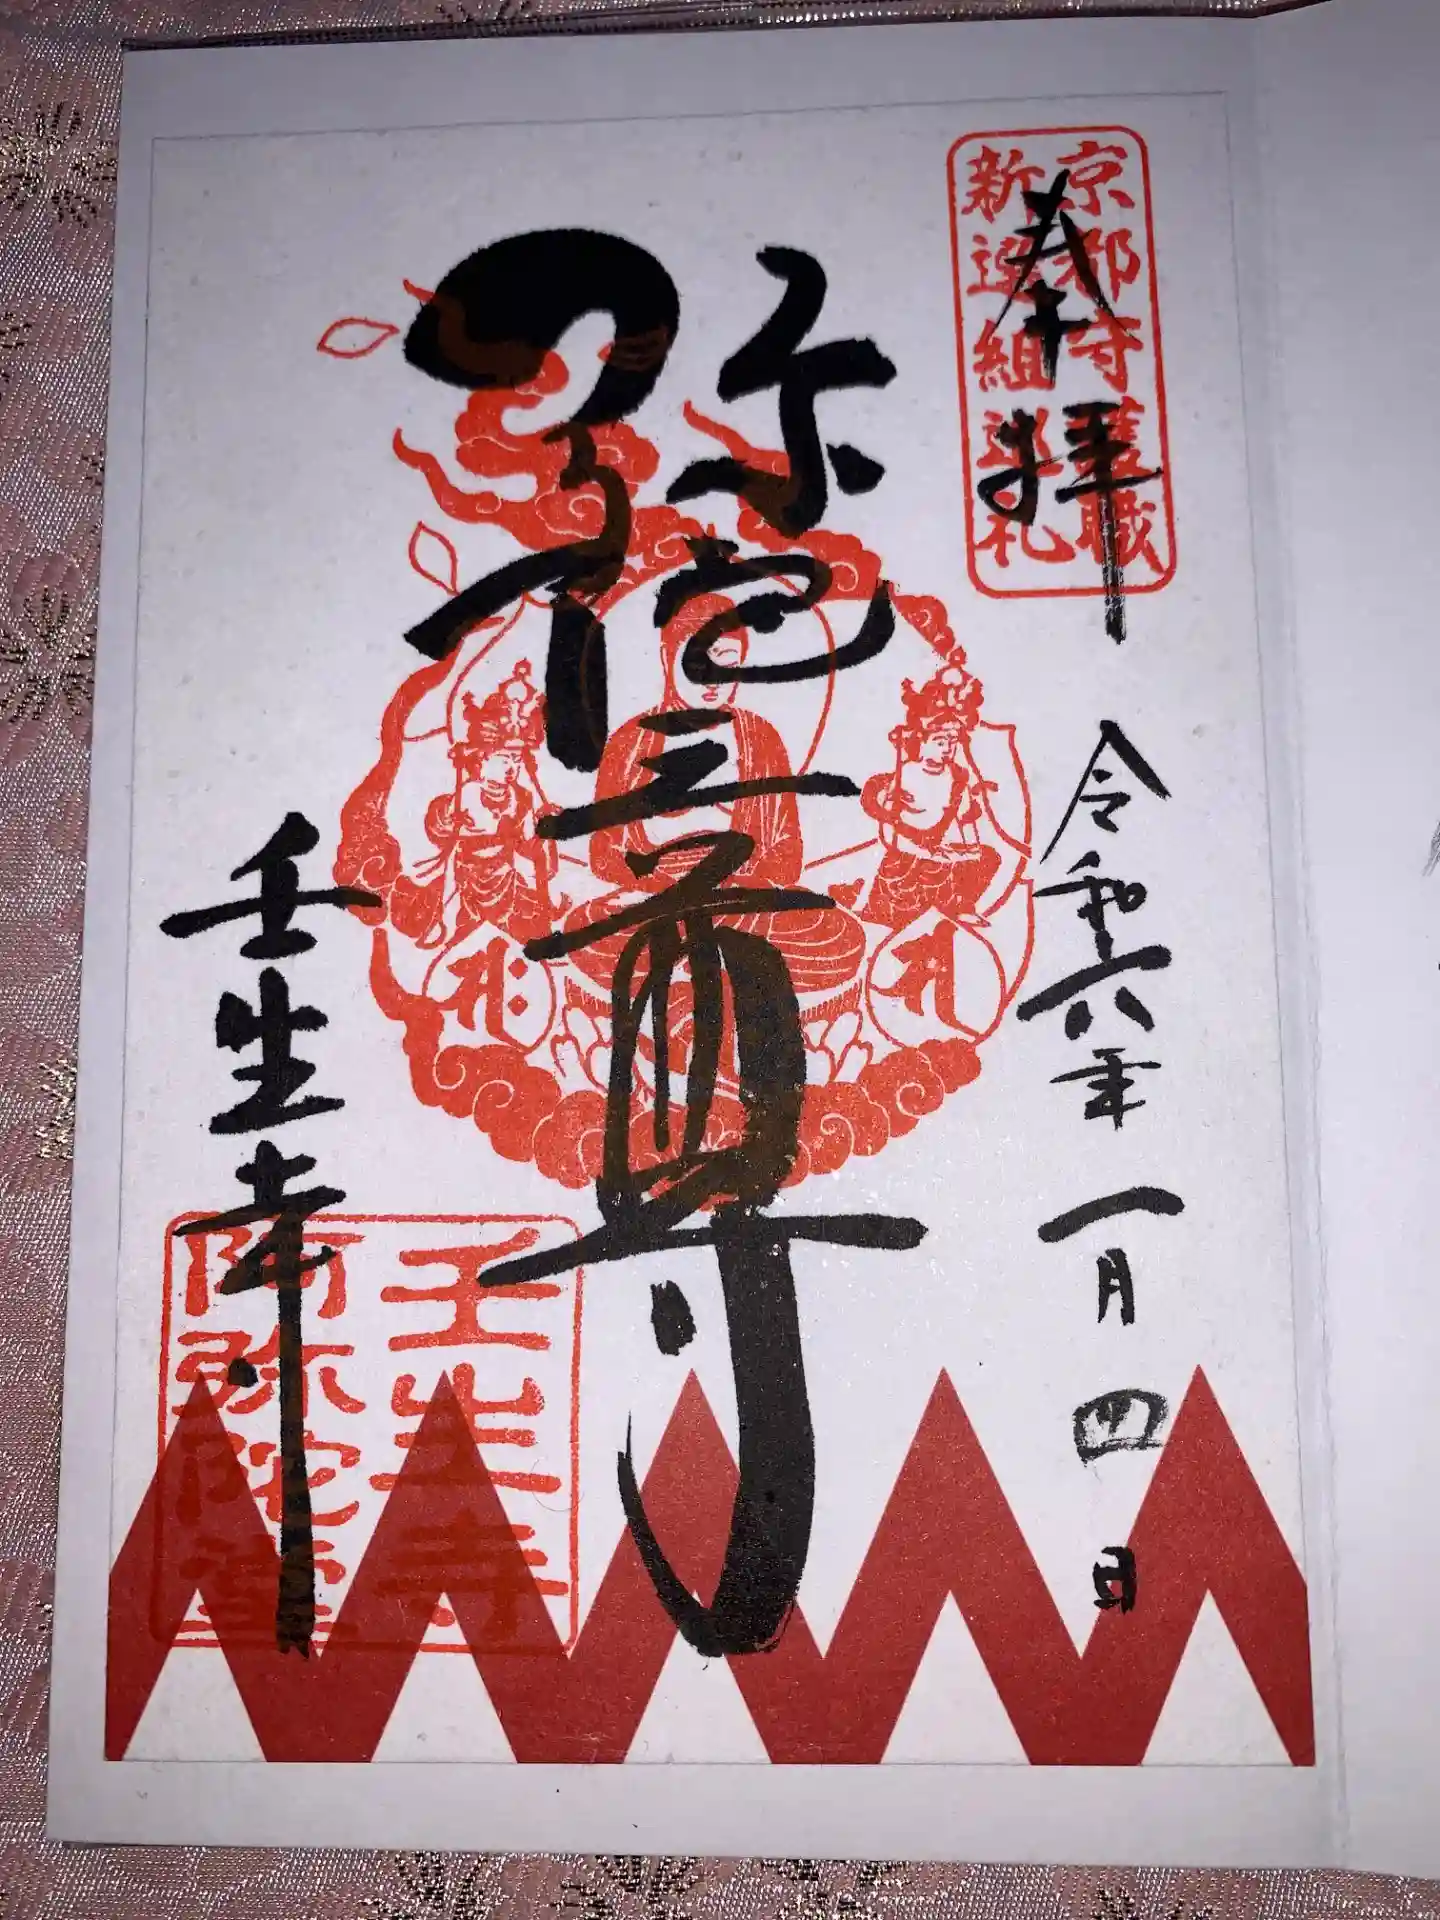 奉拝
京都守護職
新選組巡礼
令和六年一月四日
阿弥陀三尊
壬生寺
壬生寺
阿弥陀堂